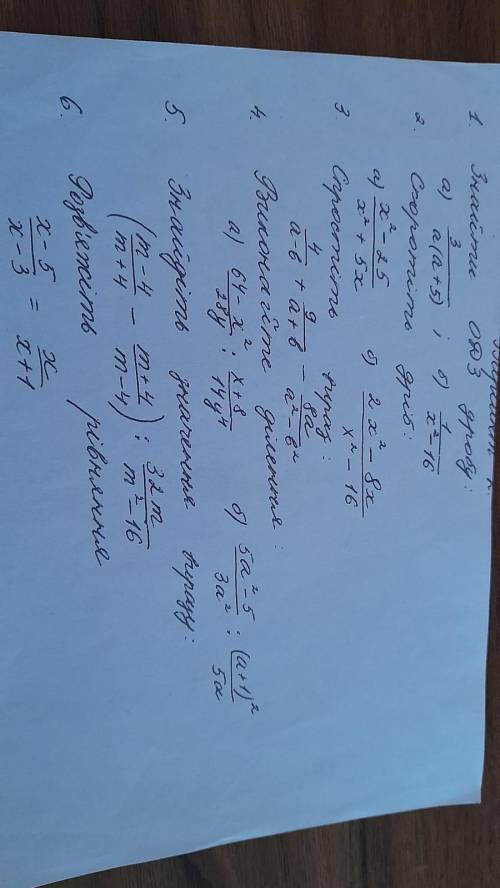 1. Знайти ОДЗ дробу:
а) 3/a(a+5) ; б) 7/x²-16
2. Скоротіть дріб:
а) x²-25/x²+5x б) 2x²-8x/x²-16
3 Спростіть вираз:
4/a-b + 9/a+b - 8a/a²-b²
4. Виконайте ділення:
а) 64-x²/28y : x+8/14y⁴ б) 5a²-5/3a² : (a+1)²/5a
5. Знайдіть значення виразу:
(m-4/m+4 - m+4/m-4) : 32m/m²-16
6. Розвʼяжіть рівняння
x-5/x-3 = x/x+1